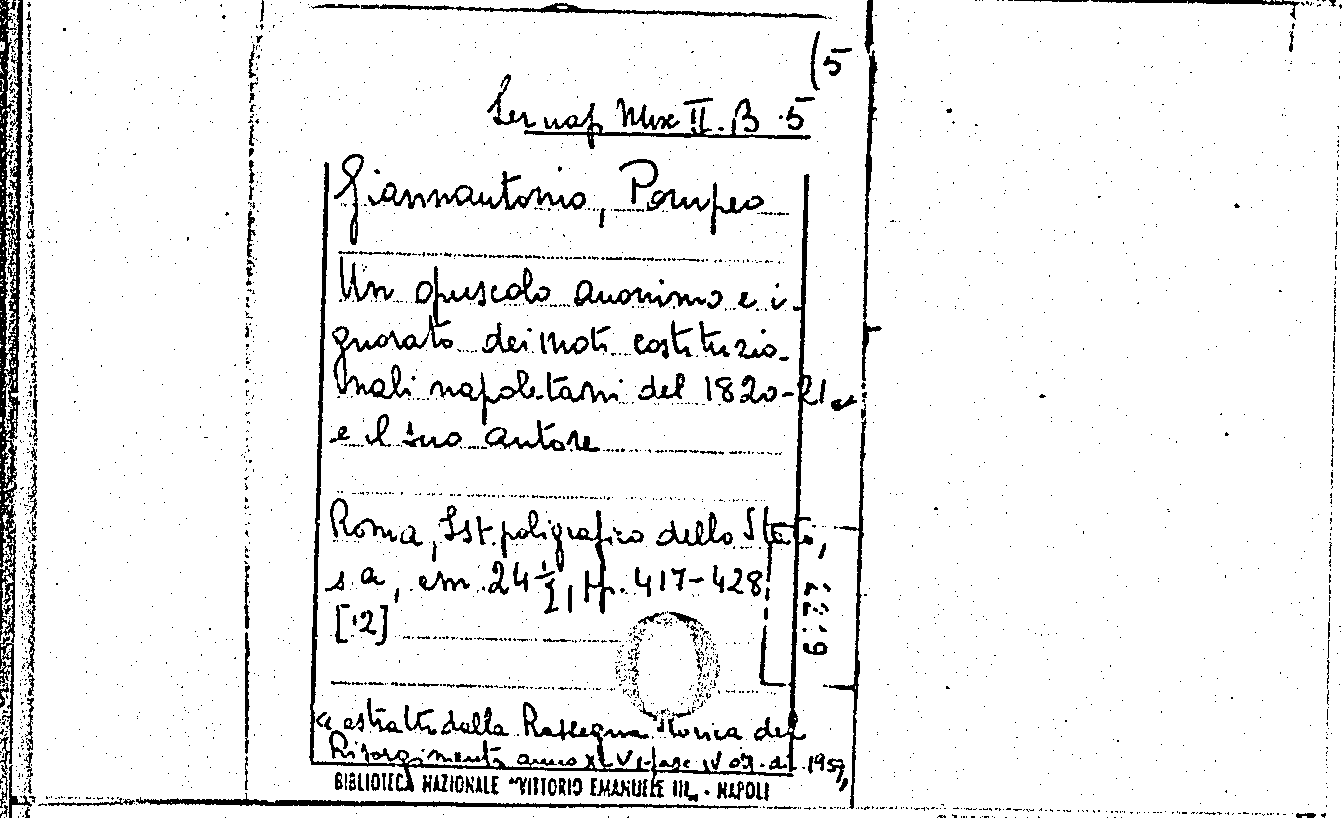 (5
Sez nap Mix II. B. 5
Giannantonio, Pompeo
Un opuscolo anonimo e i-
gnorato dei moti costituzio-
nali napoletani del 1820-21
e il suo autore
Roma, Ist. poligrafico dello Stato,
s a, cm 24 ½, pp. 417-428
[12]
estratto dalla Rassegna storica del
Risorgimento anno XLVI, fasc IV 1959,
BIBLIOTECA NAZIONALE "VITTORIO EMANUELE III„ - NAPOLI